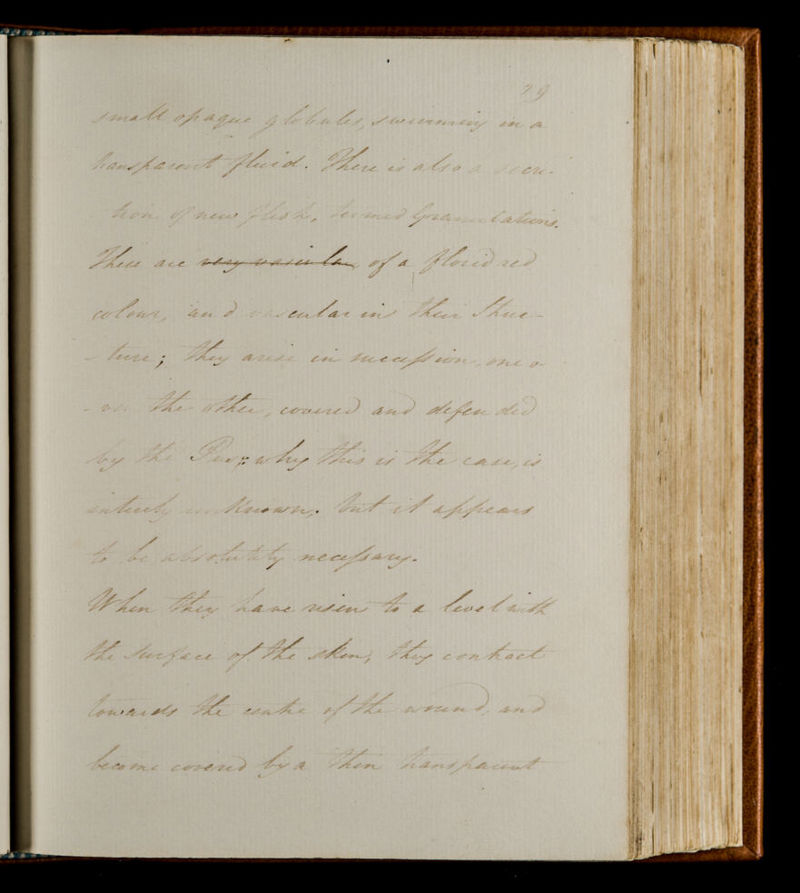 29
small opaque globules, swimming in a
transparent fluid. There is also a secre-
- tion of new flesh, termed Granulations.
These are very vascular, of a florid red
colour, and vascular in their Struc-
- ture; they arise in succession, one o-
- ver the other, covered and defended
by the Pus; why this is the case, is
entirely unknown, but it appears
to be absolutely necessary.
When they have risen to a level with
the surface of the skin, they contract
towards the centre of the wound, and
become covered by a thin transparent